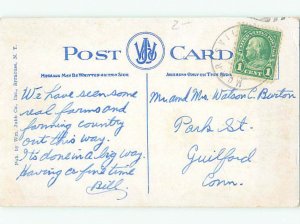 2-
POST CARD
MESSAGE MAY BE WRITTEN ON THIS SIDE
ADDRESS ONLY ON THIS SIDE
1 CENT 1
Pub. by Wm. Jubb Co. Inc., Syracuse, N. Y.
We have seen some
real farms and
farming country
out this way.
Its done in a big way.
Having a fine time
Bill
Mr and Mrs Watson C. Burton
Park St.
Guilford
Conn.